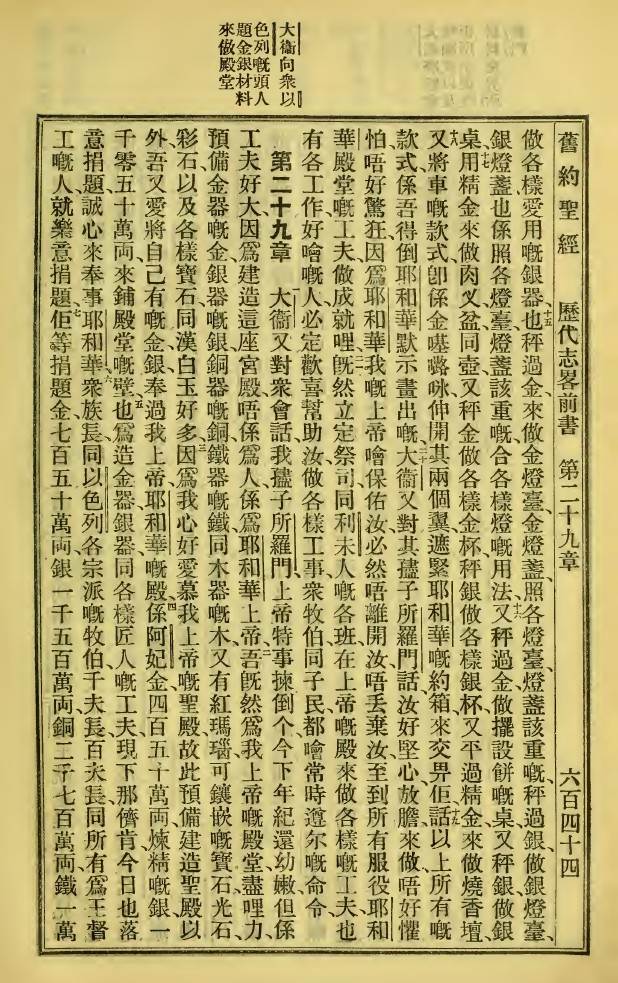 大衞向衆以
色列嘅頭人
題金銀材料
來做殿堂
舊約聖經 歷代志畧前書 第二十九章 六百四十四
做各樣愛用嘅銀器也、十五秤過金來做金燈臺、金燈盞、照各燈臺、燈盞該重嘅、秤過銀、做銀燈臺、
銀燈盞也係照各燈臺、燈盞該重嘅、合各樣燈嘅用法、十六又秤過金做擺設餅嘅桌、又秤銀做銀
桌、十七用精金來做肉叉、盆、同壺、又秤金做各樣金杯、秤銀做各樣銀杯、十八又平過精金、來做燒香壇、
又將車嘅款式、卽係金𠼻𡀔咏伸開其兩個翼、遮緊耶和華嘅約箱、來交畀佢、十九話以上所有嘅
款式、係吾得倒耶和華默示畫出嘅、二十大衞又對其孻子所羅門話、汝好堅心放膽來做、唔好懼
怕、唔好驚狂、因爲耶和華我嘅上帝、噲保佑汝、必然唔離開汝、唔丟棄汝、至到所有服役耶和
華殿堂嘅工夫、做成就哩、二一旣然立定祭司、同利未人嘅各班、在上帝嘅殿、來做各樣嘅工夫、也
有各工作好噲嘅人、必定歡喜幫助汝做各樣工事、衆牧伯同子民、都噲常時遵尔嘅命令、
第二十九章 一大衞又對衆會話、我孻子所羅門、上帝特事揀倒个、今下年紀還幼嫩、但係
工夫好大、因爲建造這座宮殿、唔係爲人、係爲耶和華上帝、二吾旣然爲我上帝嘅殿堂、盡哩力、
預備金器嘅金、銀器嘅銀、銅器嘅銅、鐵器嘅鐵、同木器嘅木、又有紅瑪瑙、可鑲嵌嘅寶石、光石、
彩石、以及各樣寶石、同漢白玉好多、三因爲我心好愛慕我上帝嘅聖殿、故此預備建造聖殿以
外、吾又愛將自己有嘅金銀、奉過我上帝耶和華嘅殿、四係阿妃金四百五十萬両、煉精嘅銀一
千零五十萬両、來鋪殿堂嘅壁也、五爲造金器、銀器、同各樣匠人嘅工夫、現下那儕肯今日也落
意捐題、誠心來奉事耶和華、六衆族長、同以色列各宗派嘅牧伯、千夫長、百夫長、同所有爲王督
工嘅人、就樂意捐題、七佢等捐題金七百五十萬両、銀一千五百萬両、銅二千七百萬両、鐵一萬